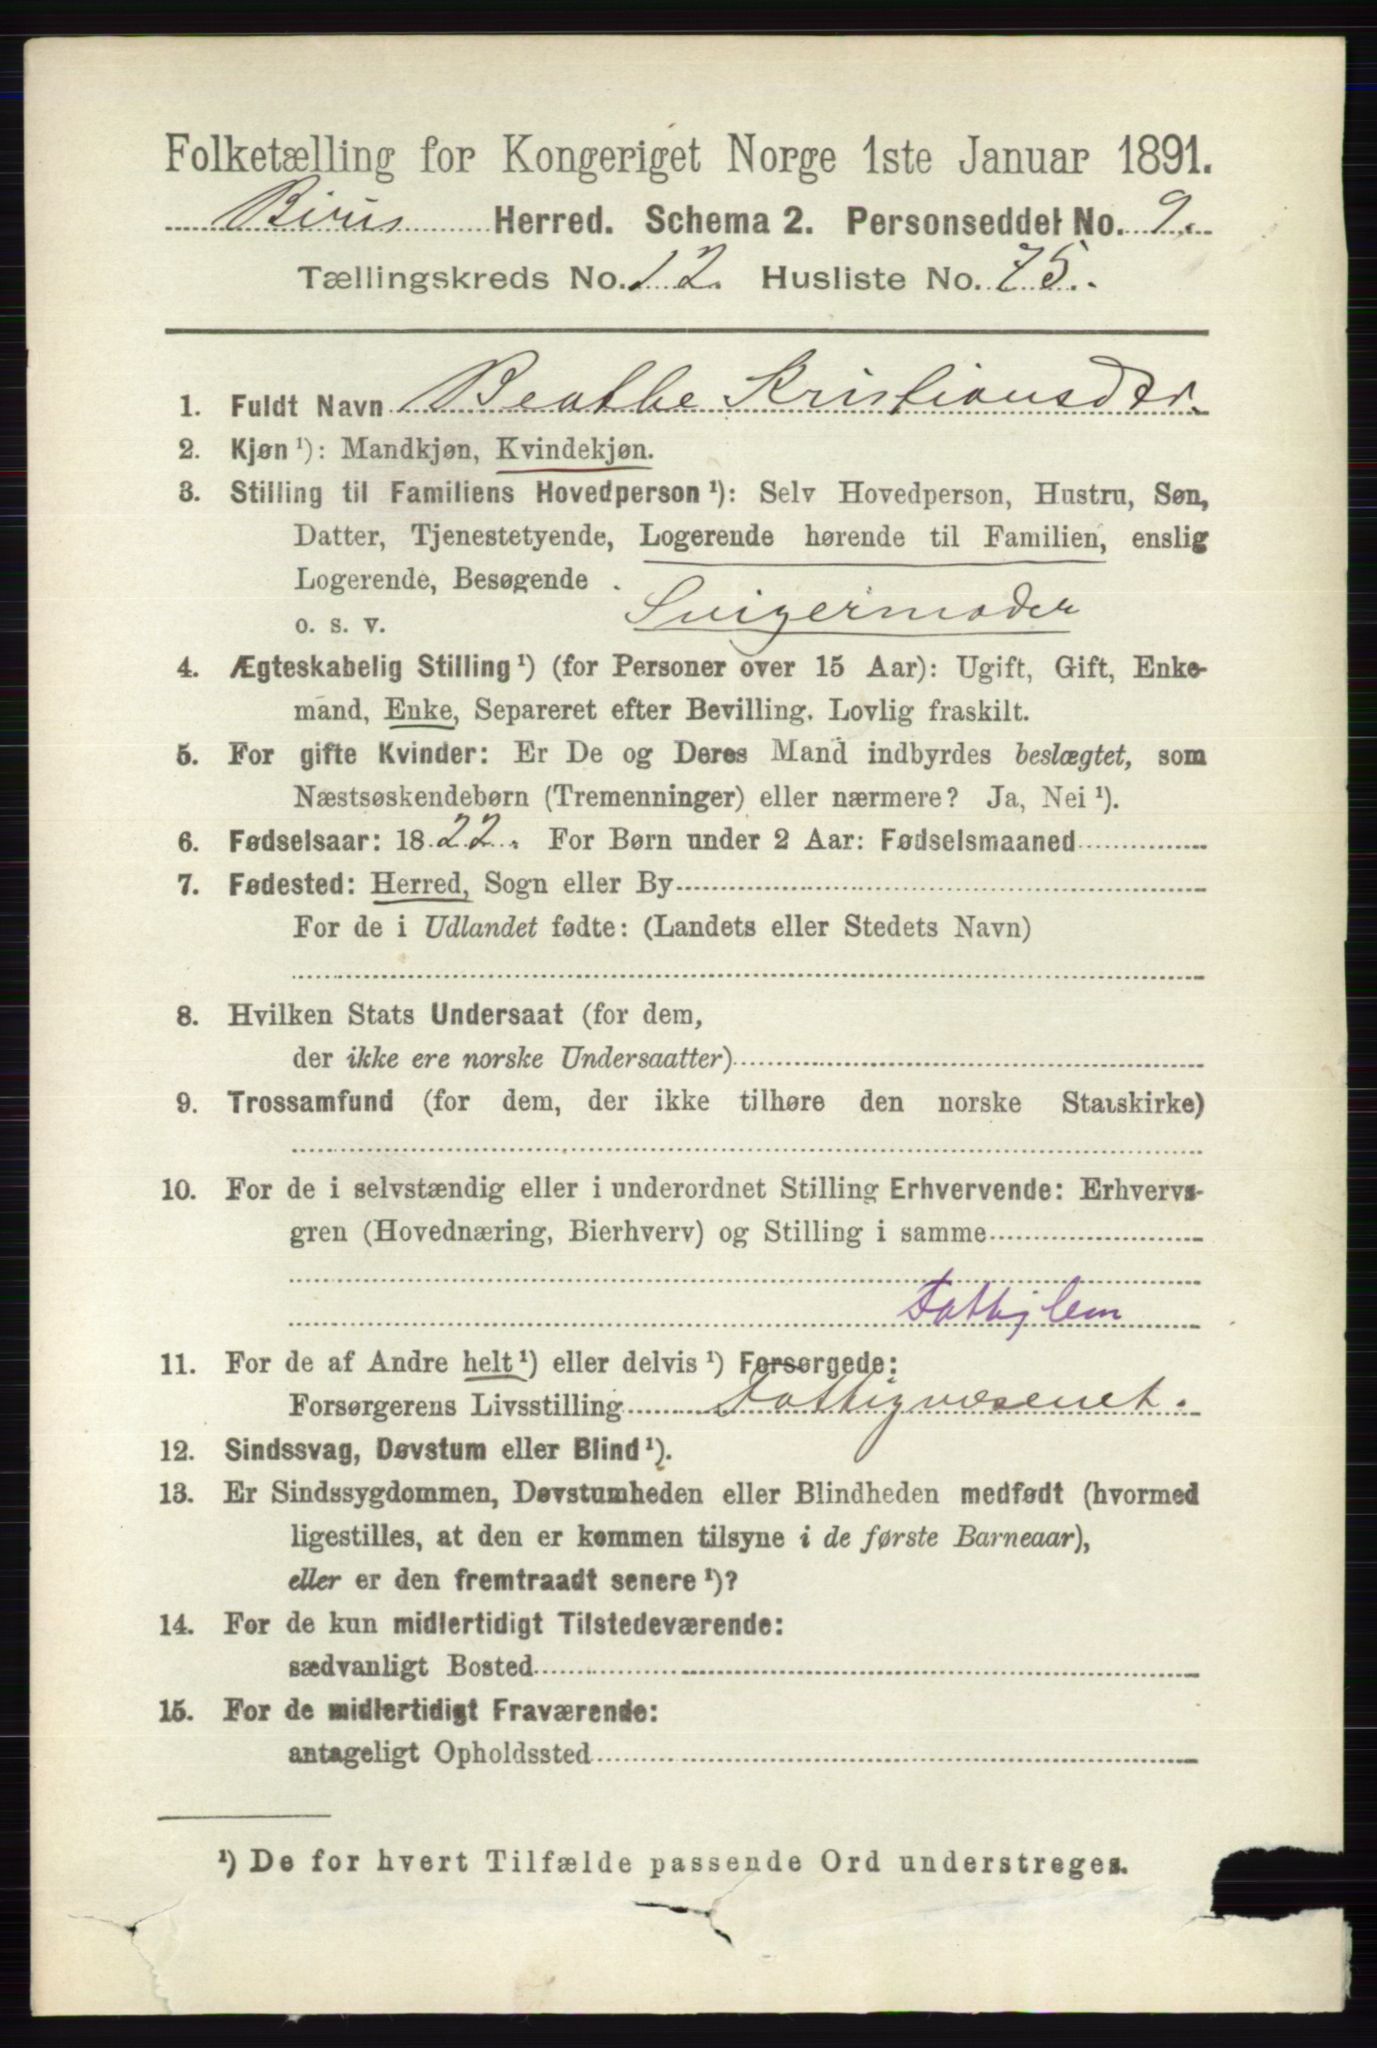 Folketælling for Kongeriget Norge 1ste Januar 1891.
Birus Herred. Schema 2. Personseddel No. 9.
Tællingskreds No. 12. Husliste No. 75.
1. Fuldt Navn Beathe Kristiansdtr.
2. Kjøn¹): Mandkjøn, Kvindekjøn.
3. Stilling til Familiens Hovedperson¹): Selv Hovedperson, Hustru, Søn,
Datter, Tjenestetyende, Logerende hørende til Familien, enslig
Logerende, Besøgende .
o. s. v. Svigermoder
4. Ægteskabelig Stilling¹) (for Personer over 15 Aar): Ugift, Gift, Enke-
mand, Enke, Separeret efter Bevilling. Lovlig fraskilt.
5. For gifte Kvinder: Er De og Deres Mand indbyrdes beslægtet, som
Næstsøskendebørn (Tremenninger) eller nærmere? Ja, Nei¹).
6. Fødselsaar: 1822. For Børn under 2 Aar: Fødselsmaaned
7. Fødested: Herred, Sogn eller By
For de i Udlandet fødte: (Landets eller Stedets Navn)
8. Hvilken Stats Undersaat (for dem,
der ikke ere norske Undersaatter)
9. Trossamfund (for dem, der ikke tilhøre den norske Statskirke)
10. For de i selvstændig eller i underordnet Stilling Erhvervende: Erhvervs-
gren (Hovednæring, Bierhverv) og Stilling i samme
Fattiglem
11. For de af Andre helt¹) eller delvis¹) Forsørgede:
Forsørgerens Livsstilling Fattigvæsenet.
12. Sindssvag, Døvstum eller Blind¹).
13. Er Sindssygdommen, Døvstumheden eller Blindheden medfødt (hvormed
ligestilles, at den er kommen tilsyne i de første Barneaar),
eller er den fremtraadt senere¹)?
14. For de kun midlertidigt Tilstedeværende:
sædvanligt Bosted
15. For de midlertidigt Fraværende:
antageligt Opholdssted
¹) De for hvert Tilfælde passende Ord understreges.